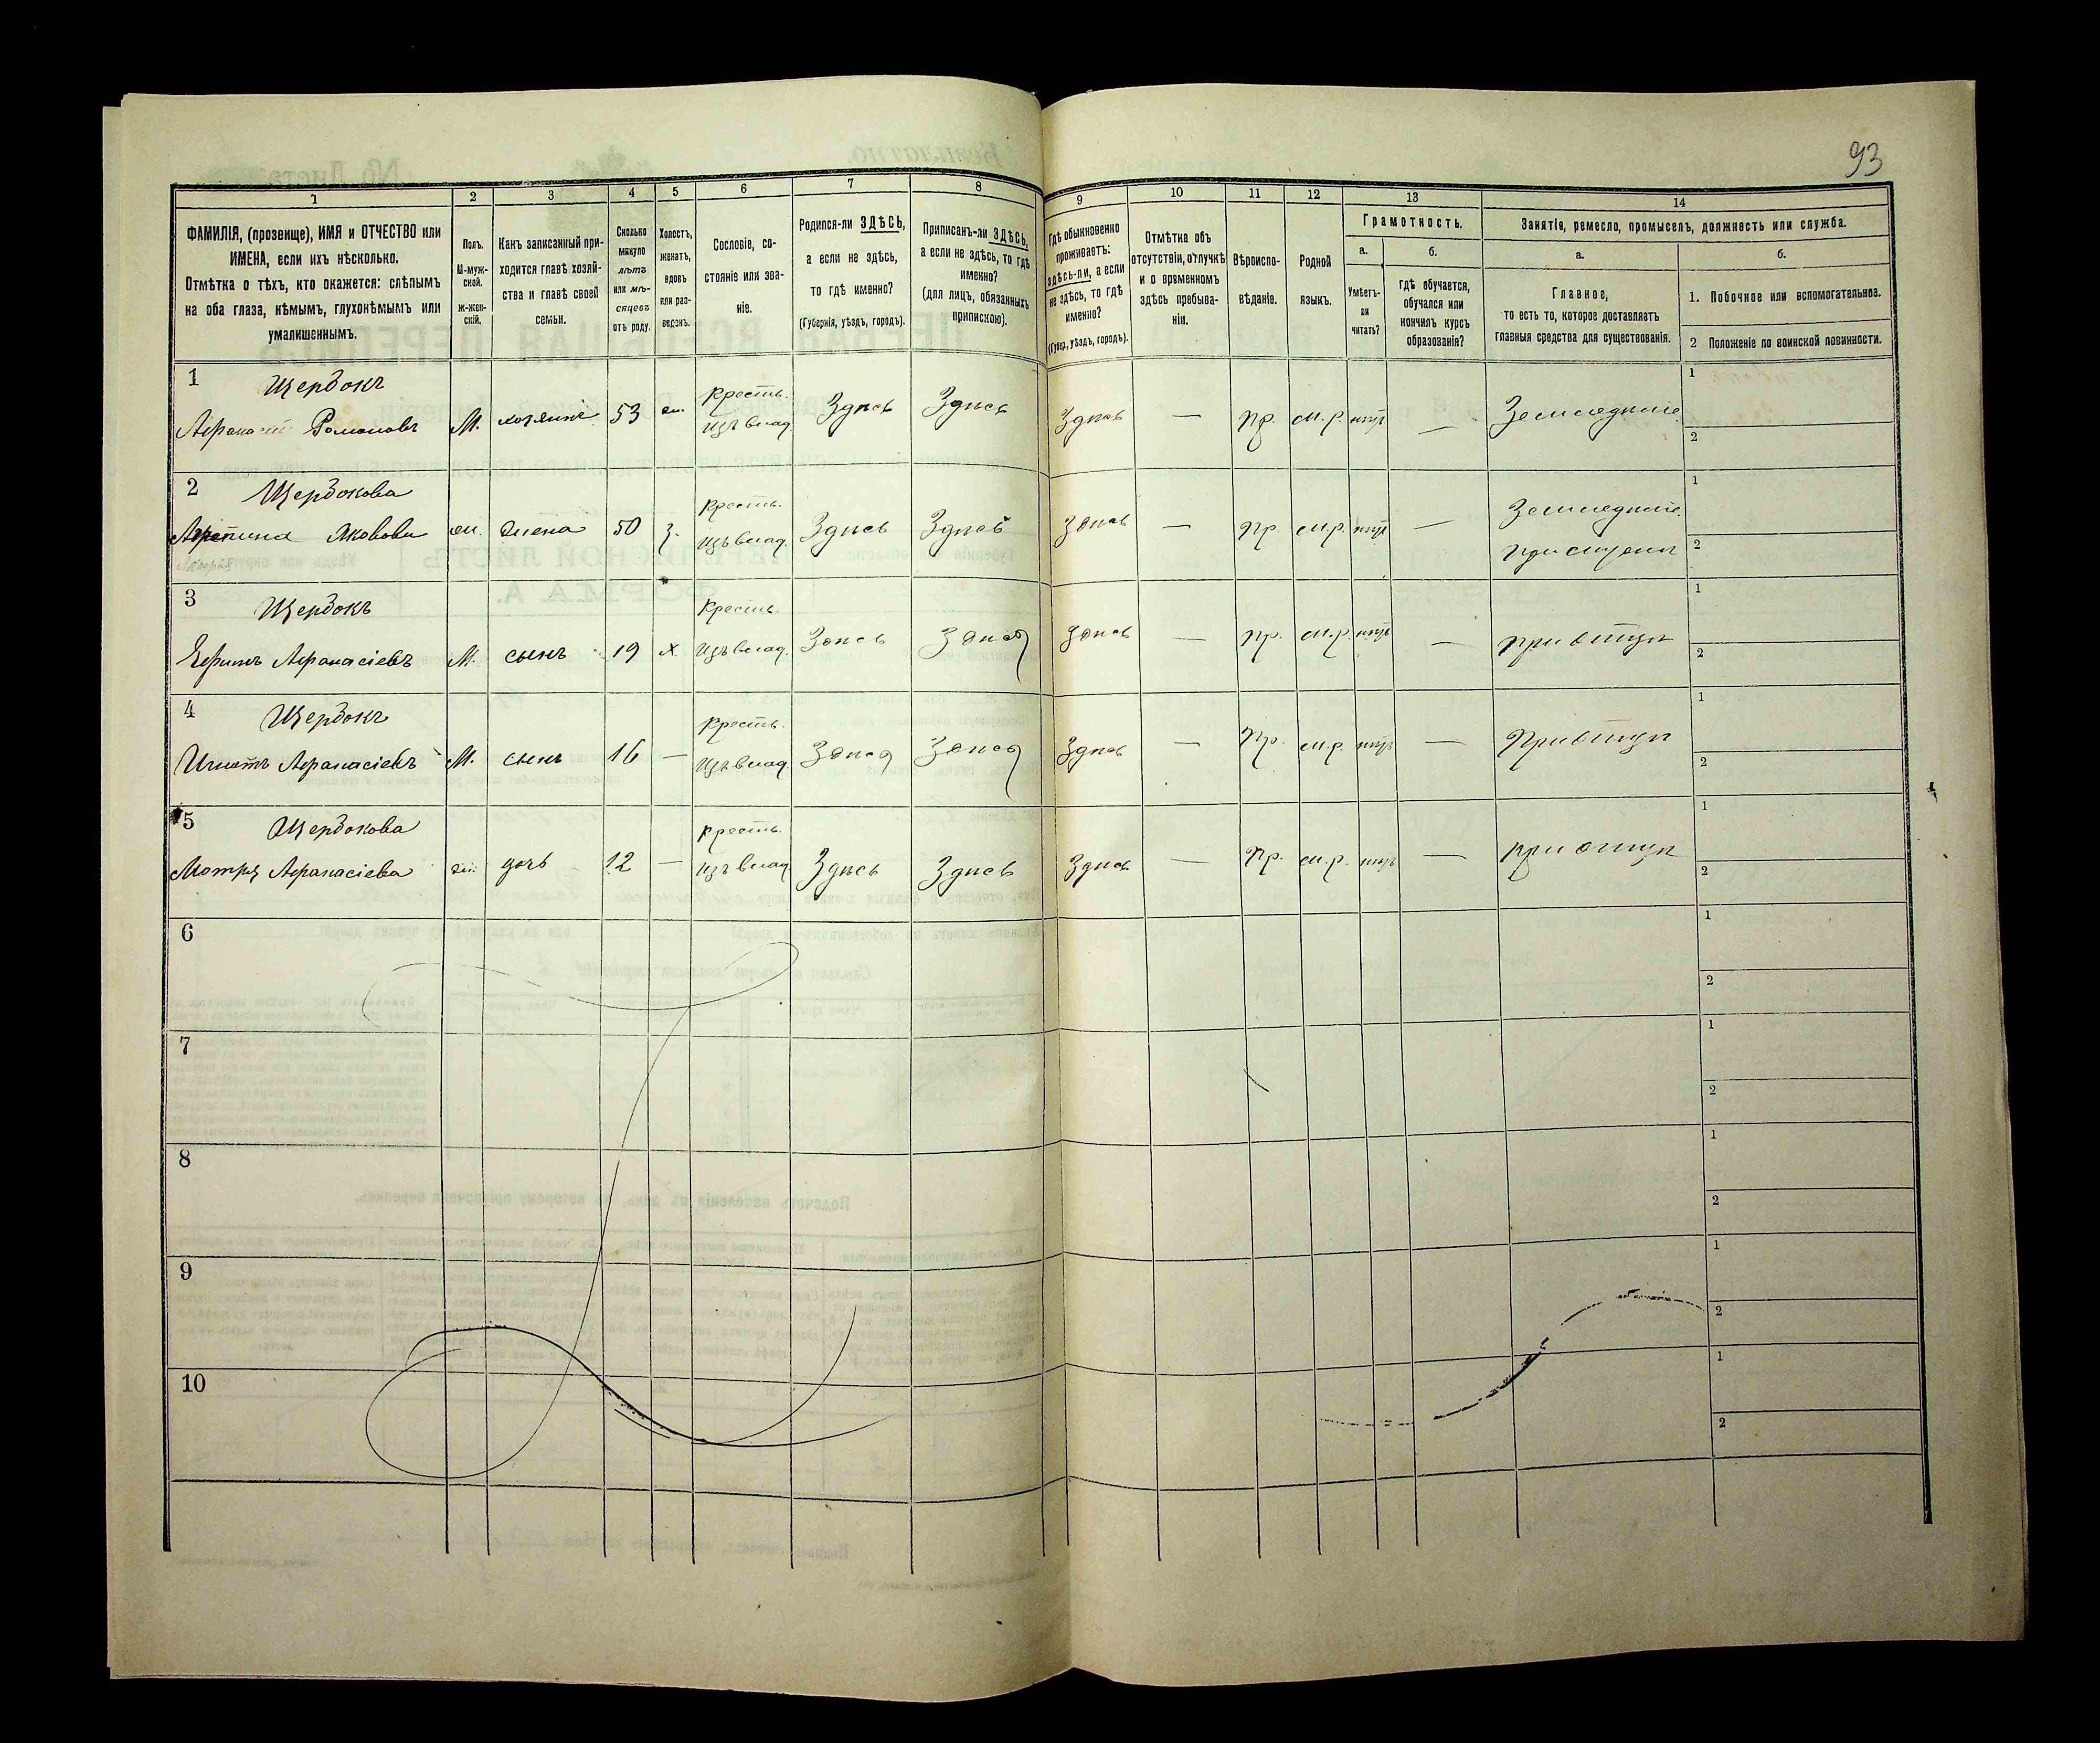 93
1 2 3 4 5 6 7 8 9 10 11 12 13 14
ФАМИЛІЯ, (прозвище), ИМЯ и ОТЧЕСТВО или
ИМЕНА, если ихъ нѣсколько.
Отмѣтка о тѣхъ, кто окажется: слѣпымъ
на оба глаза, нѣмымъ, глухонѣмымъ или
умалишеннымъ.
Полъ.
М-муж-
ской.
ж-жен-
скій.
Какъ записанный при-
ходится главѣ хозяй-
ства и главѣ своей
семьи.
Сколько
минуло
лѣтъ
или мѣ-
сяцевъ
отъ роду.
Холостъ,
женатъ,
вдовъ
или раз-
веденъ.
Сословіе, со-
стояніе или зва-
ніе.
Родился-ли ЗДѢСЬ,
а если не здѣсь,
то гдѣ именно?
(Губернія, уѣздъ, городъ).
Приписанъ-ли ЗДѢСЬ,
а если не здѣсь, то гдѣ
именно?
(для лицъ, обязанныхъ
припискою).
Гдѣ обыкновенно
проживаетъ:
здѣсь-ли, а если
не здѣсь, то гдѣ
именно?
(Губер., уѣздъ, городъ).
Отмѣтка объ
отсутствіи, отлучкѣ
и о временномъ
здѣсь пребыва-
ніи.
Вѣроиспо-
вѣданіе.
Родной
языкъ.
Грамотность.
а.
Умѣетъ-
ли
читать?
б.
гдѣ обучается,
обучался или
кончилъ курсъ
образованія?
Занятія, ремесло, промыселъ, должность или служба.
а.
Главное,
то есть то, которое доставляетъ
главныя средства для существованія.
б.
1. Побочное или вспомогательное.
2 Положеніе по воинской повинности.
1 Щербокъ Кресть. 1
Афанасій Романовъ М. хозяинъ 53 ж. изъ влад. Здѣсь Здѣсь Здѣсь — пр. м.р. нѣтъ — Земледѣліе 2
2 Щербокова Кресть. Земледѣліе 1
Яковова ж. жена 50 з. изъ влад. Здѣсь Здѣсь Здѣсь — пр. м.р. нѣтъ — 2
3 Щербокъ Кресть. 1
Ефимъ Афанасіевъ М. сынъ 19 х. изъ влад. Здѣсь Здѣсь Здѣсь — пр. м.р. нѣтъ — 2
4 Щербокъ Кресть. 1
Игнатъ Афанасіевъ М. сынъ 16 — изъ влад. Здѣсь Здѣсь Здѣсь — пр. м.р. нѣтъ — 2
5 Щербокова Кресть. 1
Мотря Афанасіева ж. дочь 12 — изъ влад. Здѣсь Здѣсь Здѣсь — пр. м.р. нѣтъ — 2
6 1
2
7 1
2
8 1
2
9 1
2
10 1
2